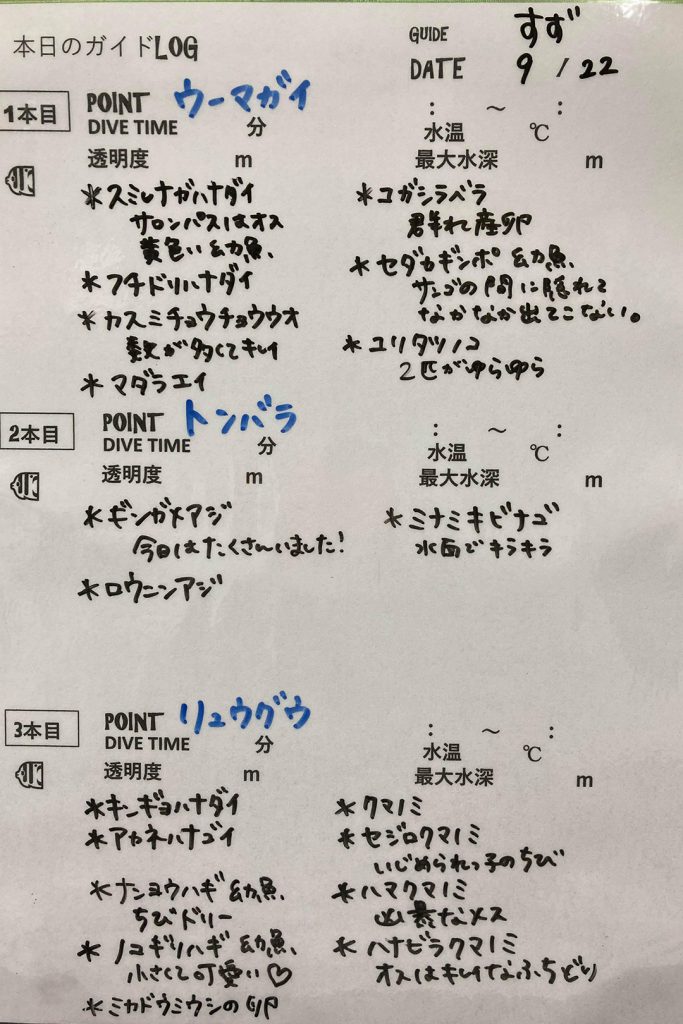 本日のガイドLOG
GUIDE すず
DATE 9 / 22
1本目 POINT ウーマガイ : ～ :
DIVE TIME 分 水温 ℃
透明度 m 最大水深 m
*スミレナガハナダイ
サロンパスはオス
黄色い幼魚、
*フチドリハナダイ
*カスミチョウチョウウオ
数が多くてキレイ
*マダラエイ
*コガシラベラ
群れ産卵
*セダカギンポ 幼魚、
サンゴの間に隠れて
なかなか出てこない。
*ユリタツノコ
2匹がゆらゆら
2本目 POINT トンバラ : ～ :
DIVE TIME 分 水温 ℃
透明度 m 最大水深 m
*ギンガメアジ
今日はたくさんいました!
*ロウニンアジ
*ミナミキビナゴ
水面でキラキラ
3本目 POINT リュウグウ : ～ :
DIVE TIME 分 水温 ℃
透明度 m 最大水深 m
*キンギョハナダイ
*アカネハナゴイ
*ナンヨウハギ 幼魚、
ちびドリー
*ノコギリハギ 幼魚、
小さくて可愛い♡
*ミカドウミウシの卵
*クマノミ
*セジロクマノミ
いじめられっ子のちび
*ハマクマノミ
凶暴なメス
*ハナビラクマノミ
オスはキレイなふちどり